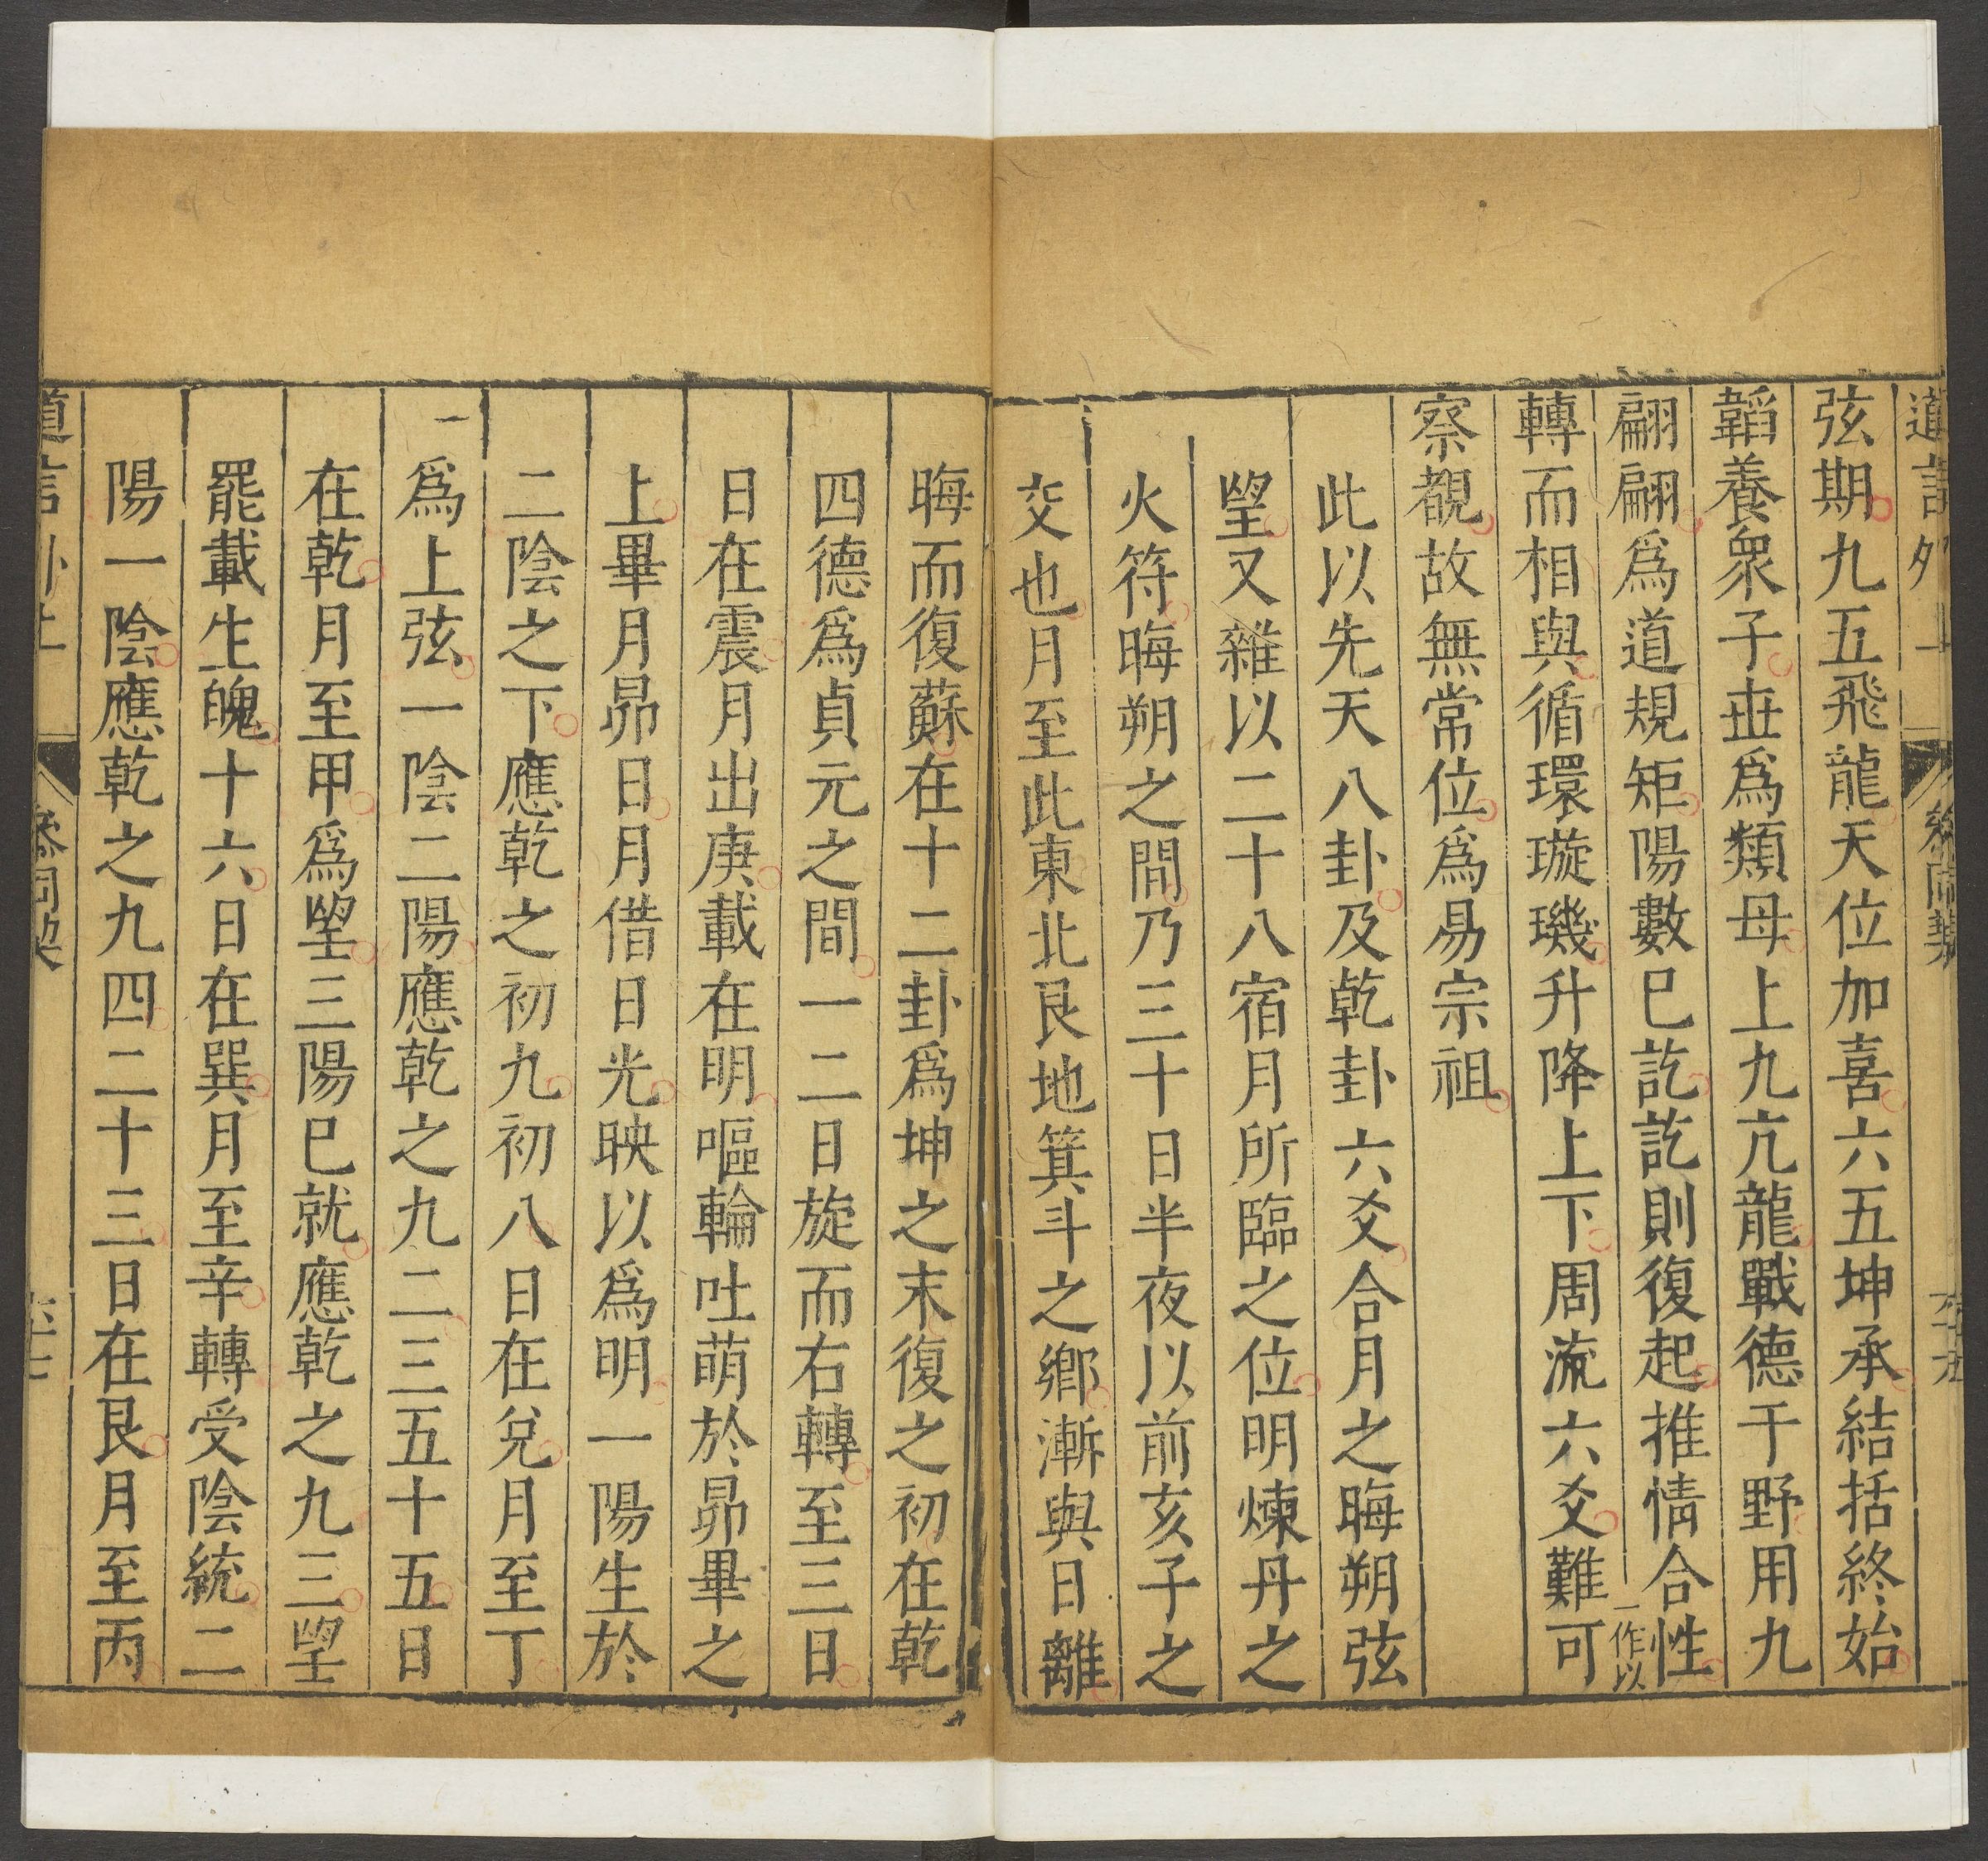 弦期九五飛龍天位加喜六五坤承結括終始
韜養衆子丗爲類母上九亢龍戰德于野用九
翩翩爲道規矩陽數巳訖訖則復起推情合性一作以
轉而相與循環璇璣升降上下周流六爻難可
察覩故無常位爲易宗祖
此以先天八卦及乾卦六爻合月之晦朔弦
朢又雜以二十八宿月所臨之位明煉丹之
火符晦朔之間乃三十日半夜以前亥子之
交也月至此東北艮地箕斗之鄉漸與日離
晦而復蘇在十二卦爲坤之末復之初在乾
四德爲貞元之間一二日旋而右轉至三日
日在震月出庚載在明嘔輪吐萌於昴畢之
上畢月昴日月借日光映以爲明一陽生於
二陰之下應乾之初九初八日在兌月至丁
一爲上弦一陰二陽應乾之九二三五十五日
在乾月至甲爲朢三陽巳就應乾之九三朢
罷載生魄十六日在巽月至辛轉受陰統二
陽一陰應乾之九四二十三日在艮月至丙